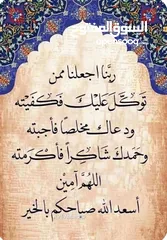 السوق المفتوح
ربنا اجعلنا ممن
توكل عليك فكفيته
ودعاك مخلصا فأجبته
وحمدك شاكرا فأكرمته
اللهم آمين
أسعد الله صباحكم بالخير